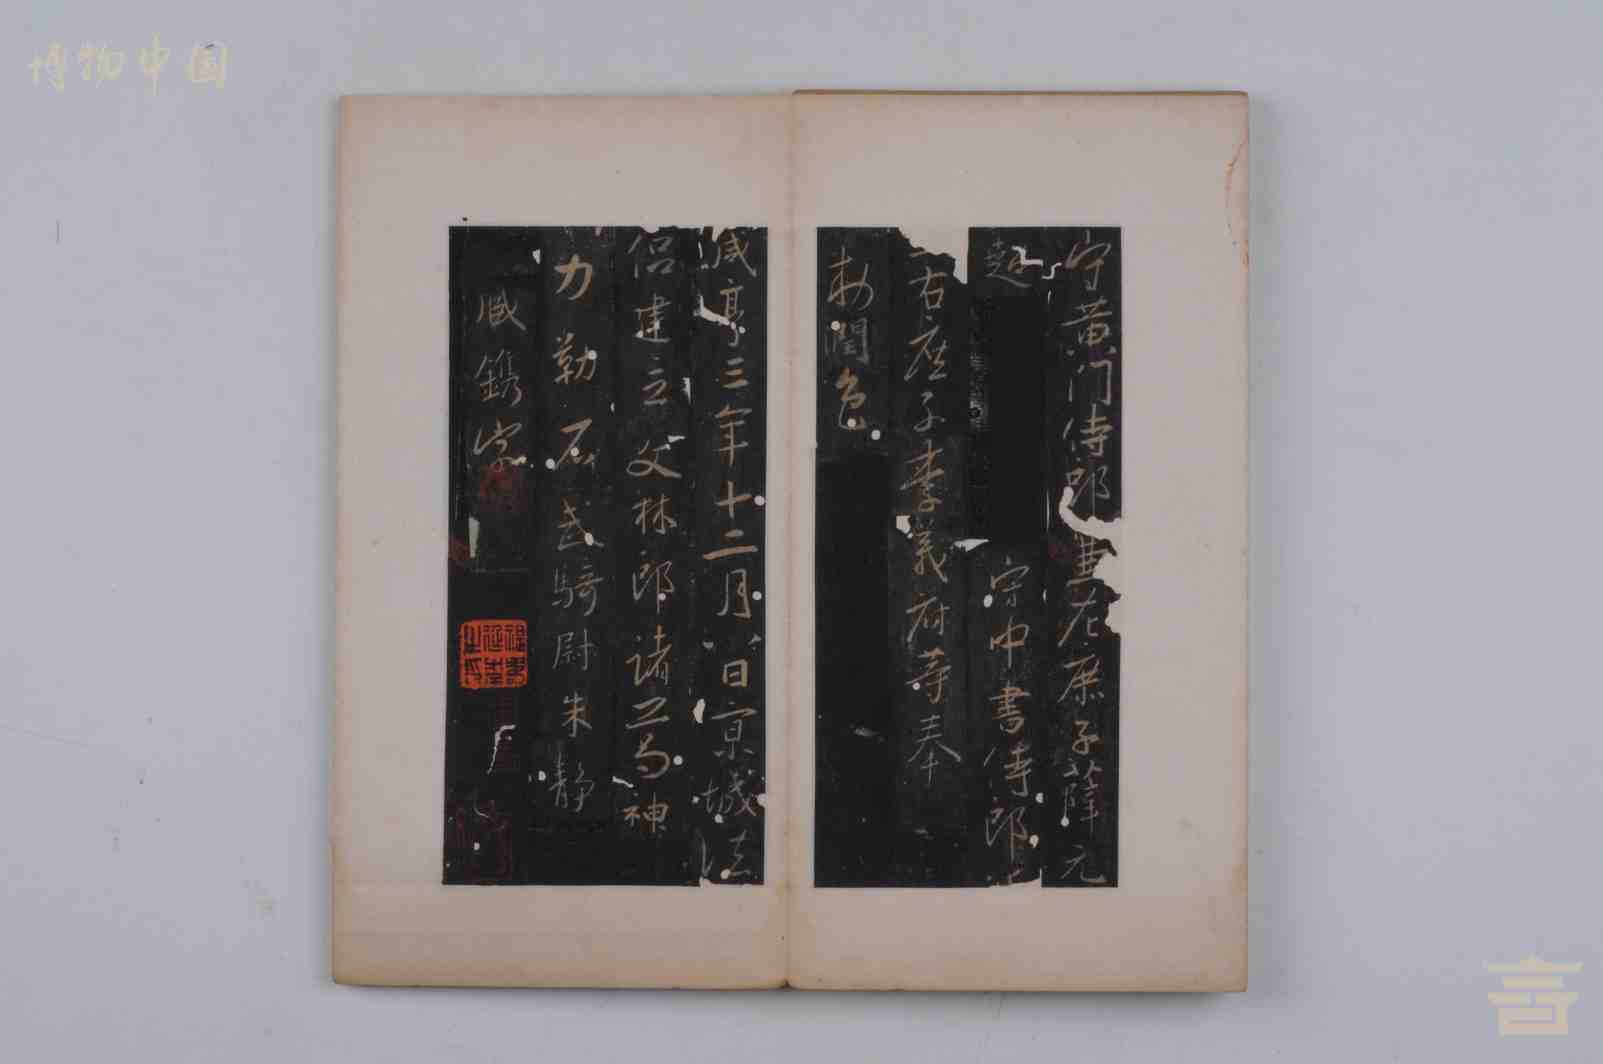 守黄门侍郎兼左庶子薛元
超
守中书侍郎
右庶子李义府等奉
敕润色
咸亨三年十二月八日京城法
侣建立文林郎诸葛神
力勒石武骑尉朱静
藏镌字
博物中国